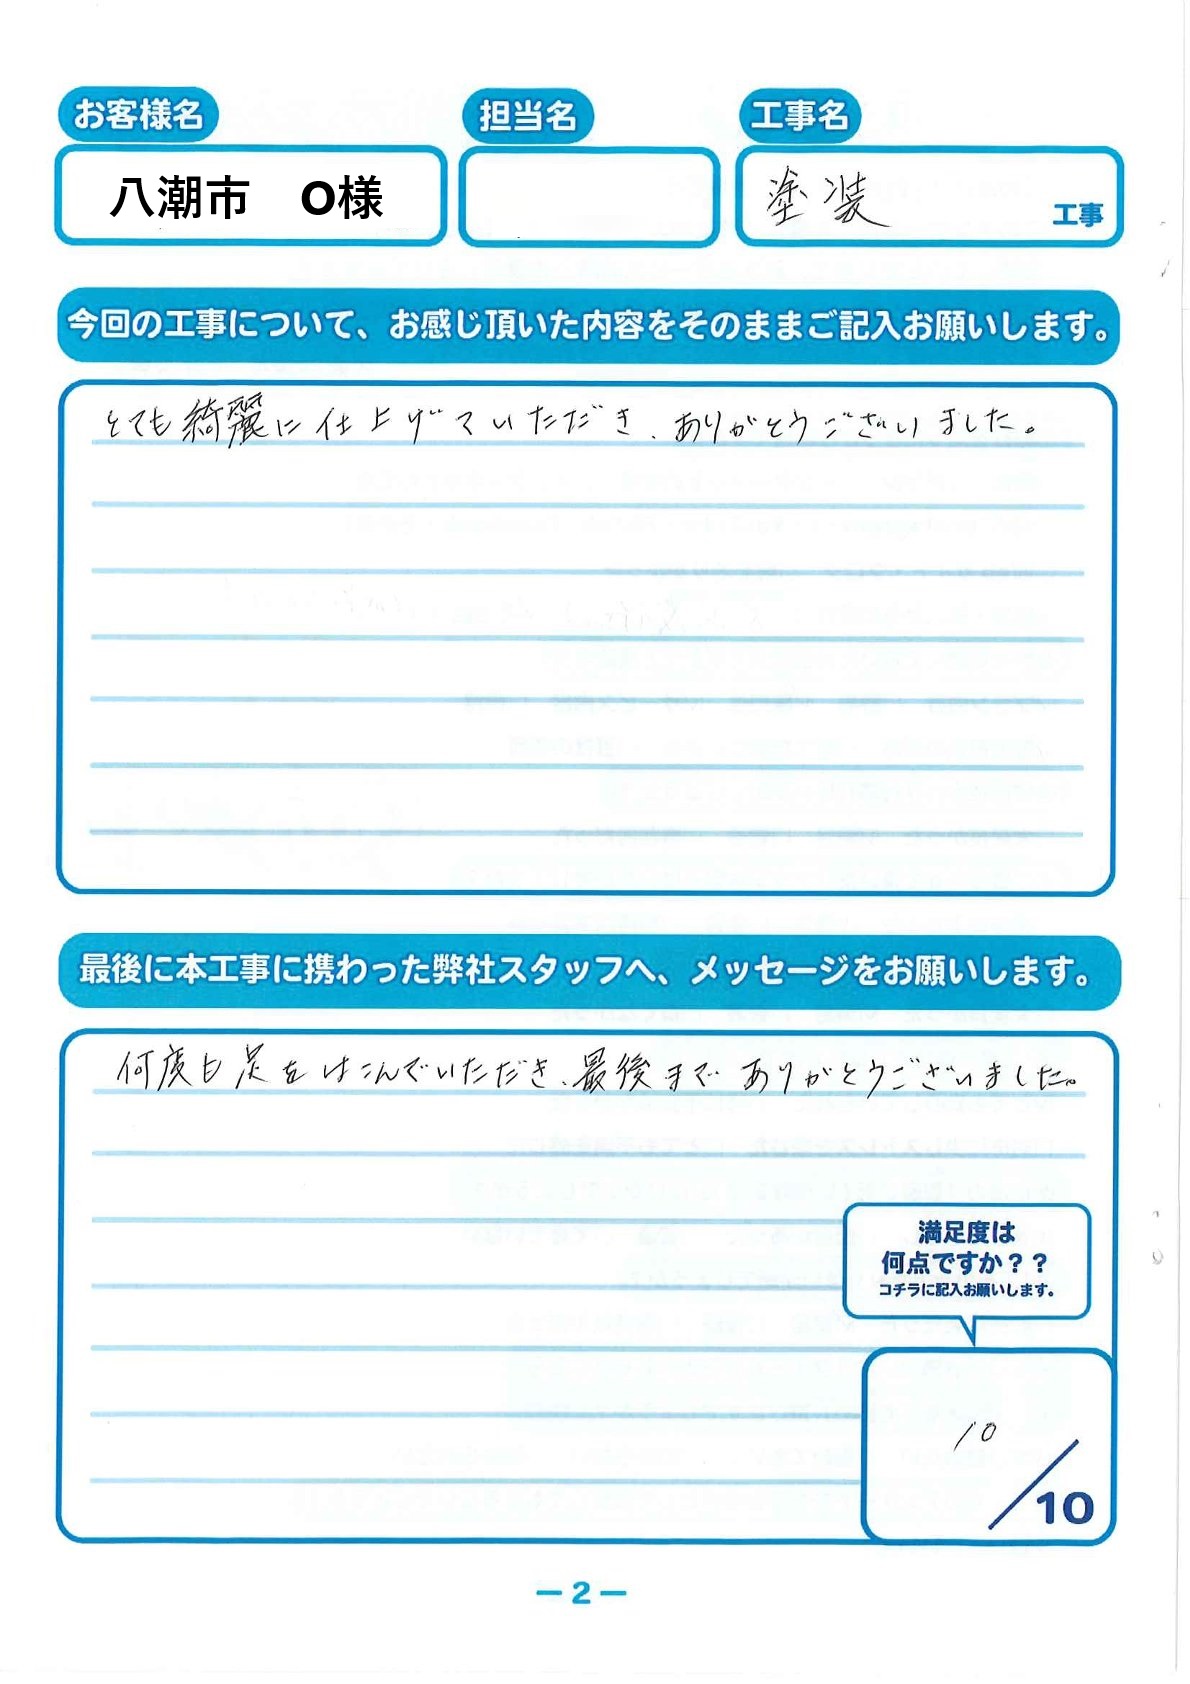 お客様名
担当名
工事名
八潮市 O様
塗装
工事
今回の工事について、お感じ頂いた内容をそのままご記入お願いします。
とても綺麗に仕上げていただき、ありがとうございました。
最後に本工事に携わった弊社スタッフへ、メッセージをお願いします。
何度も足をはこんでいただき、最後までありがとうございました。
満足度は
何点ですか？？
コチラに記入お願いします。
10
/10
ー2ー